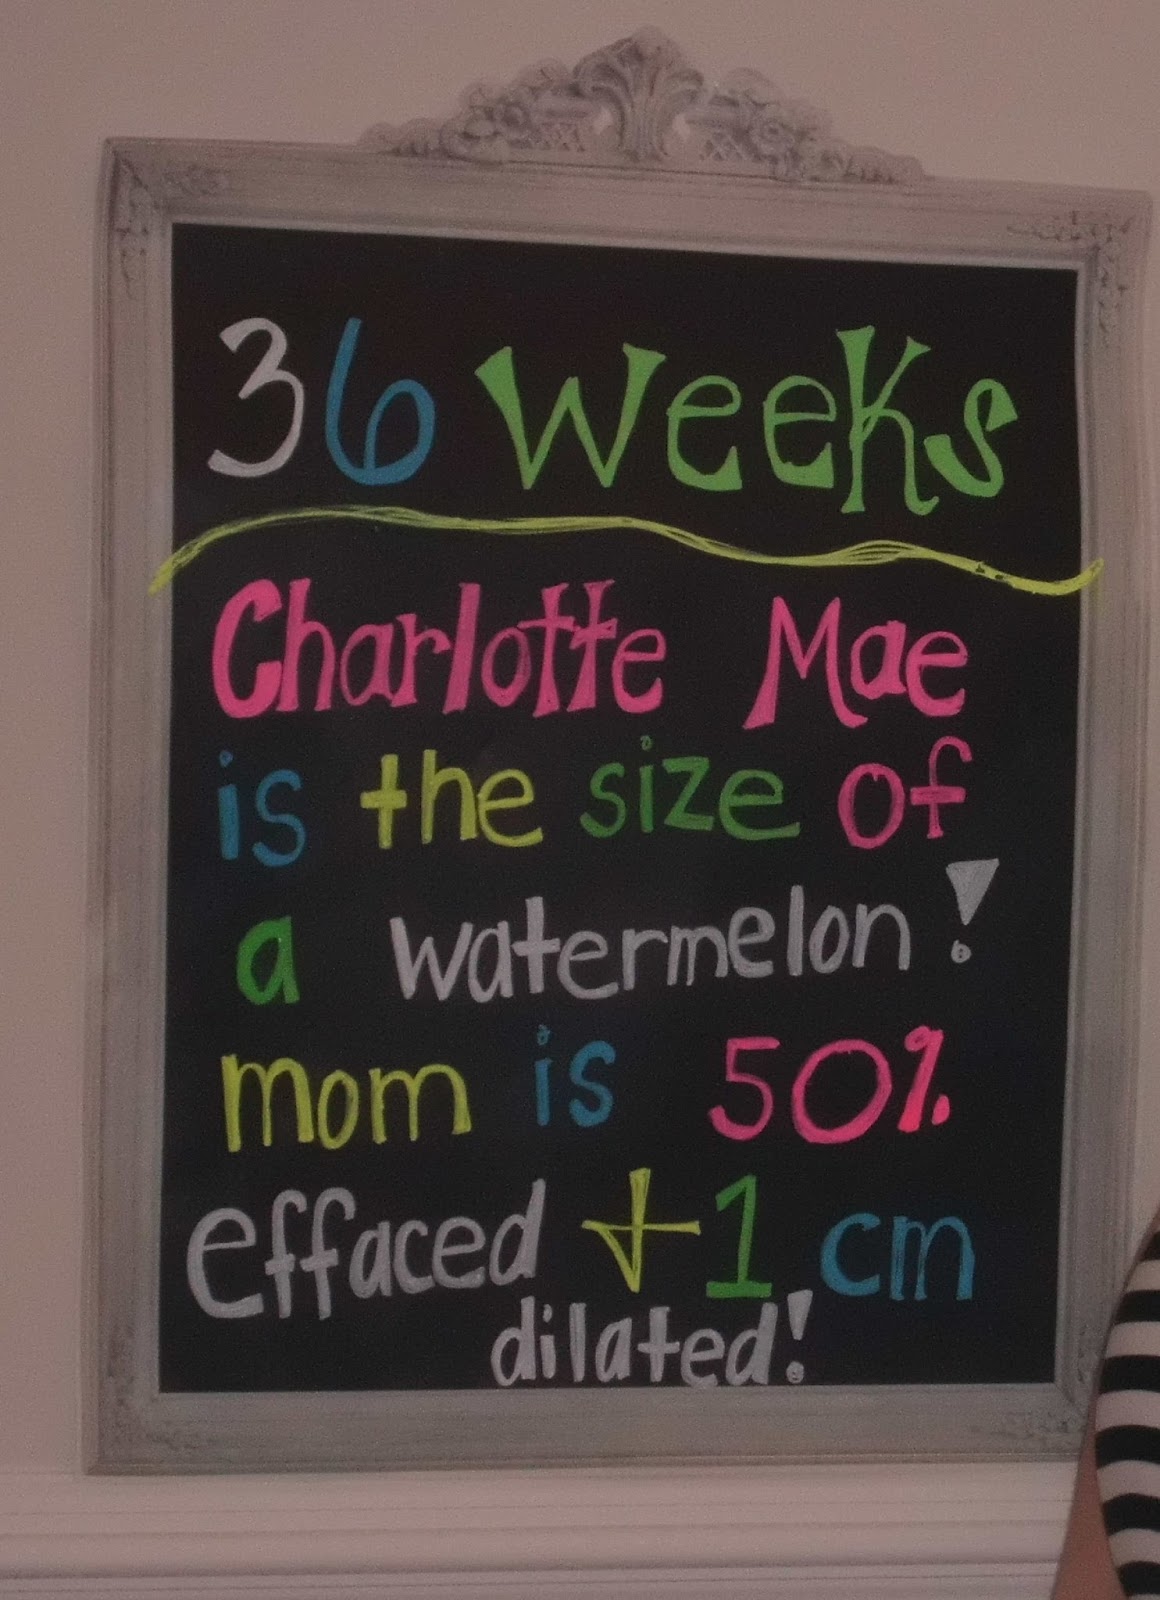 36 Weeks
Charlotte Mae
is the size of
a watermelon!
mom is 50%
effaced + 1 cm
dilated!